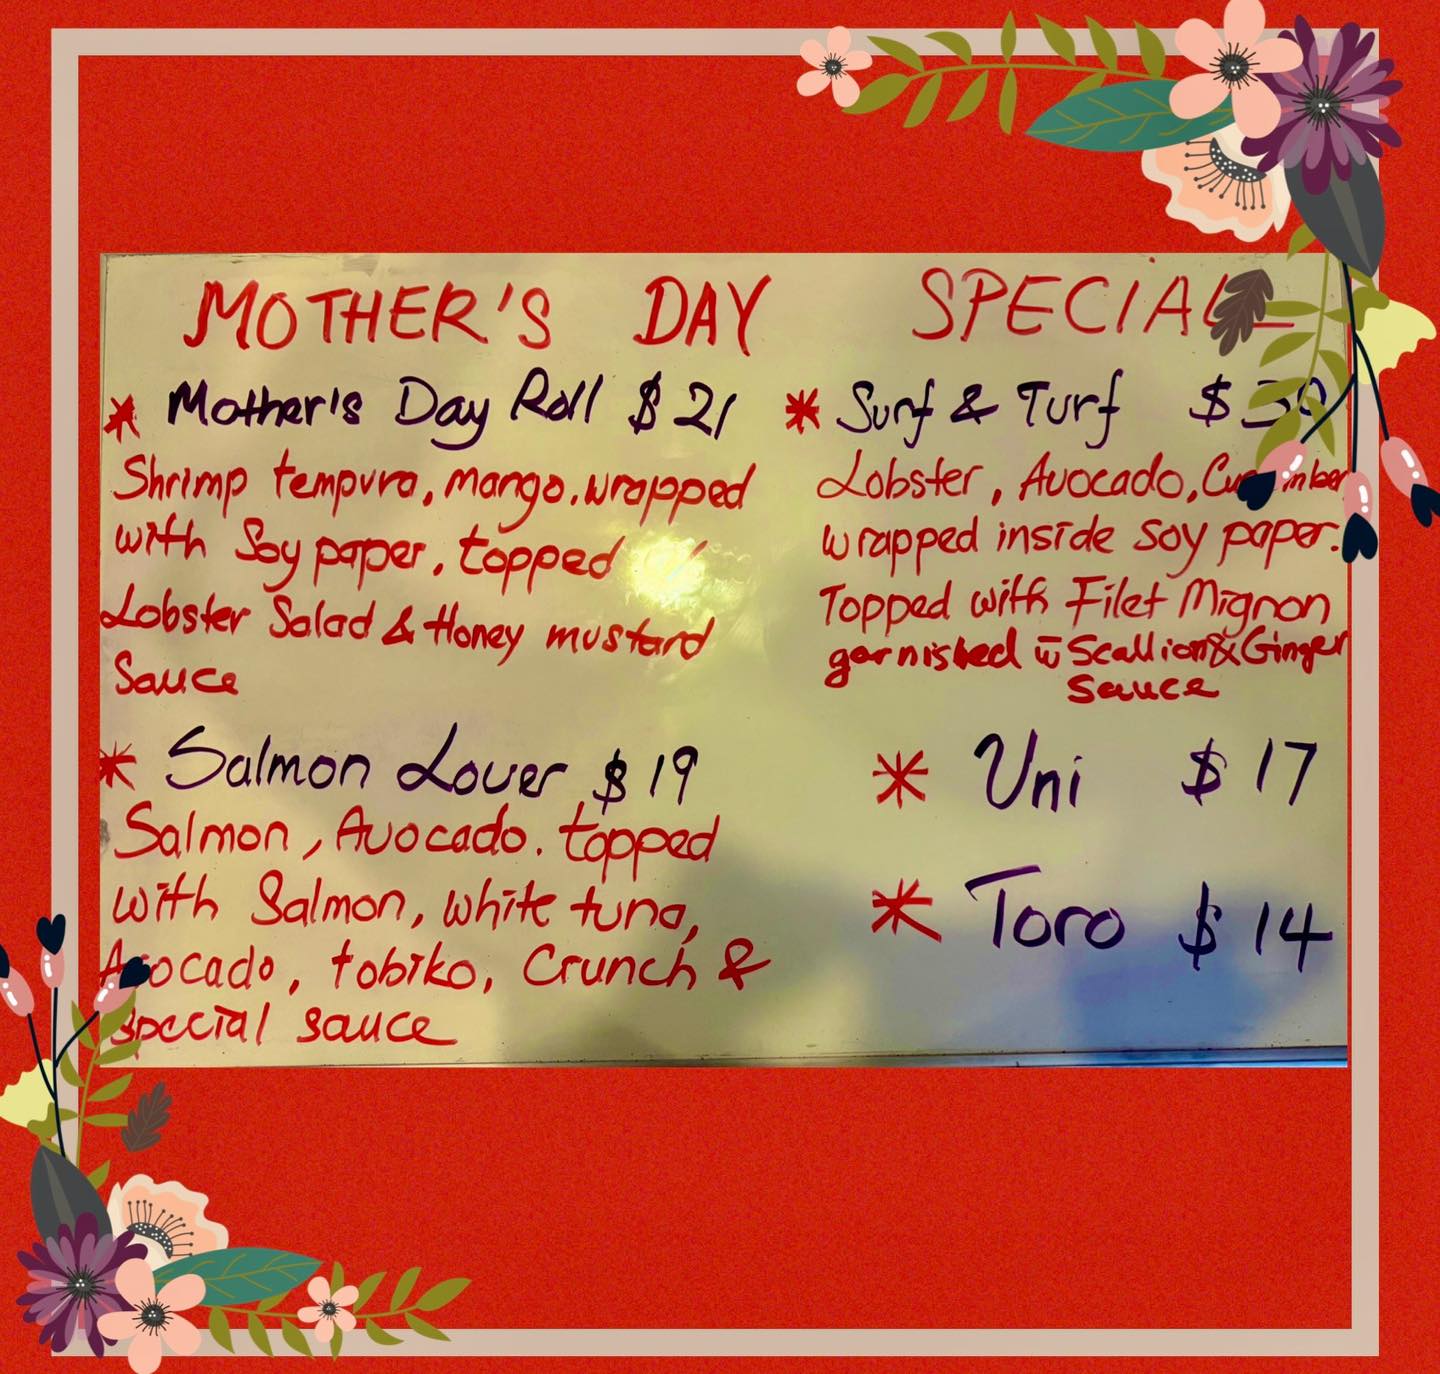 MOTHER'S DAY SPECIAL
* Mother's Day Roll $21
Shrimp tempura, mango. wrapped
with Soy paper. topped
Lobster Salad & Honey mustard
Sauce
* Salmon Lover $19
Salmon, Avocado. topped
with Salmon, white tuna,
Avocado, tobiko, Crunch &
special sauce
* Surf & Turf $30
Lobster, Avocado, Cucumber
wrapped inside soy paper.
Topped with Filet Mignon
garnished w̄ Scallion & Ginger
sauce
* Uni $17
* Toro $14